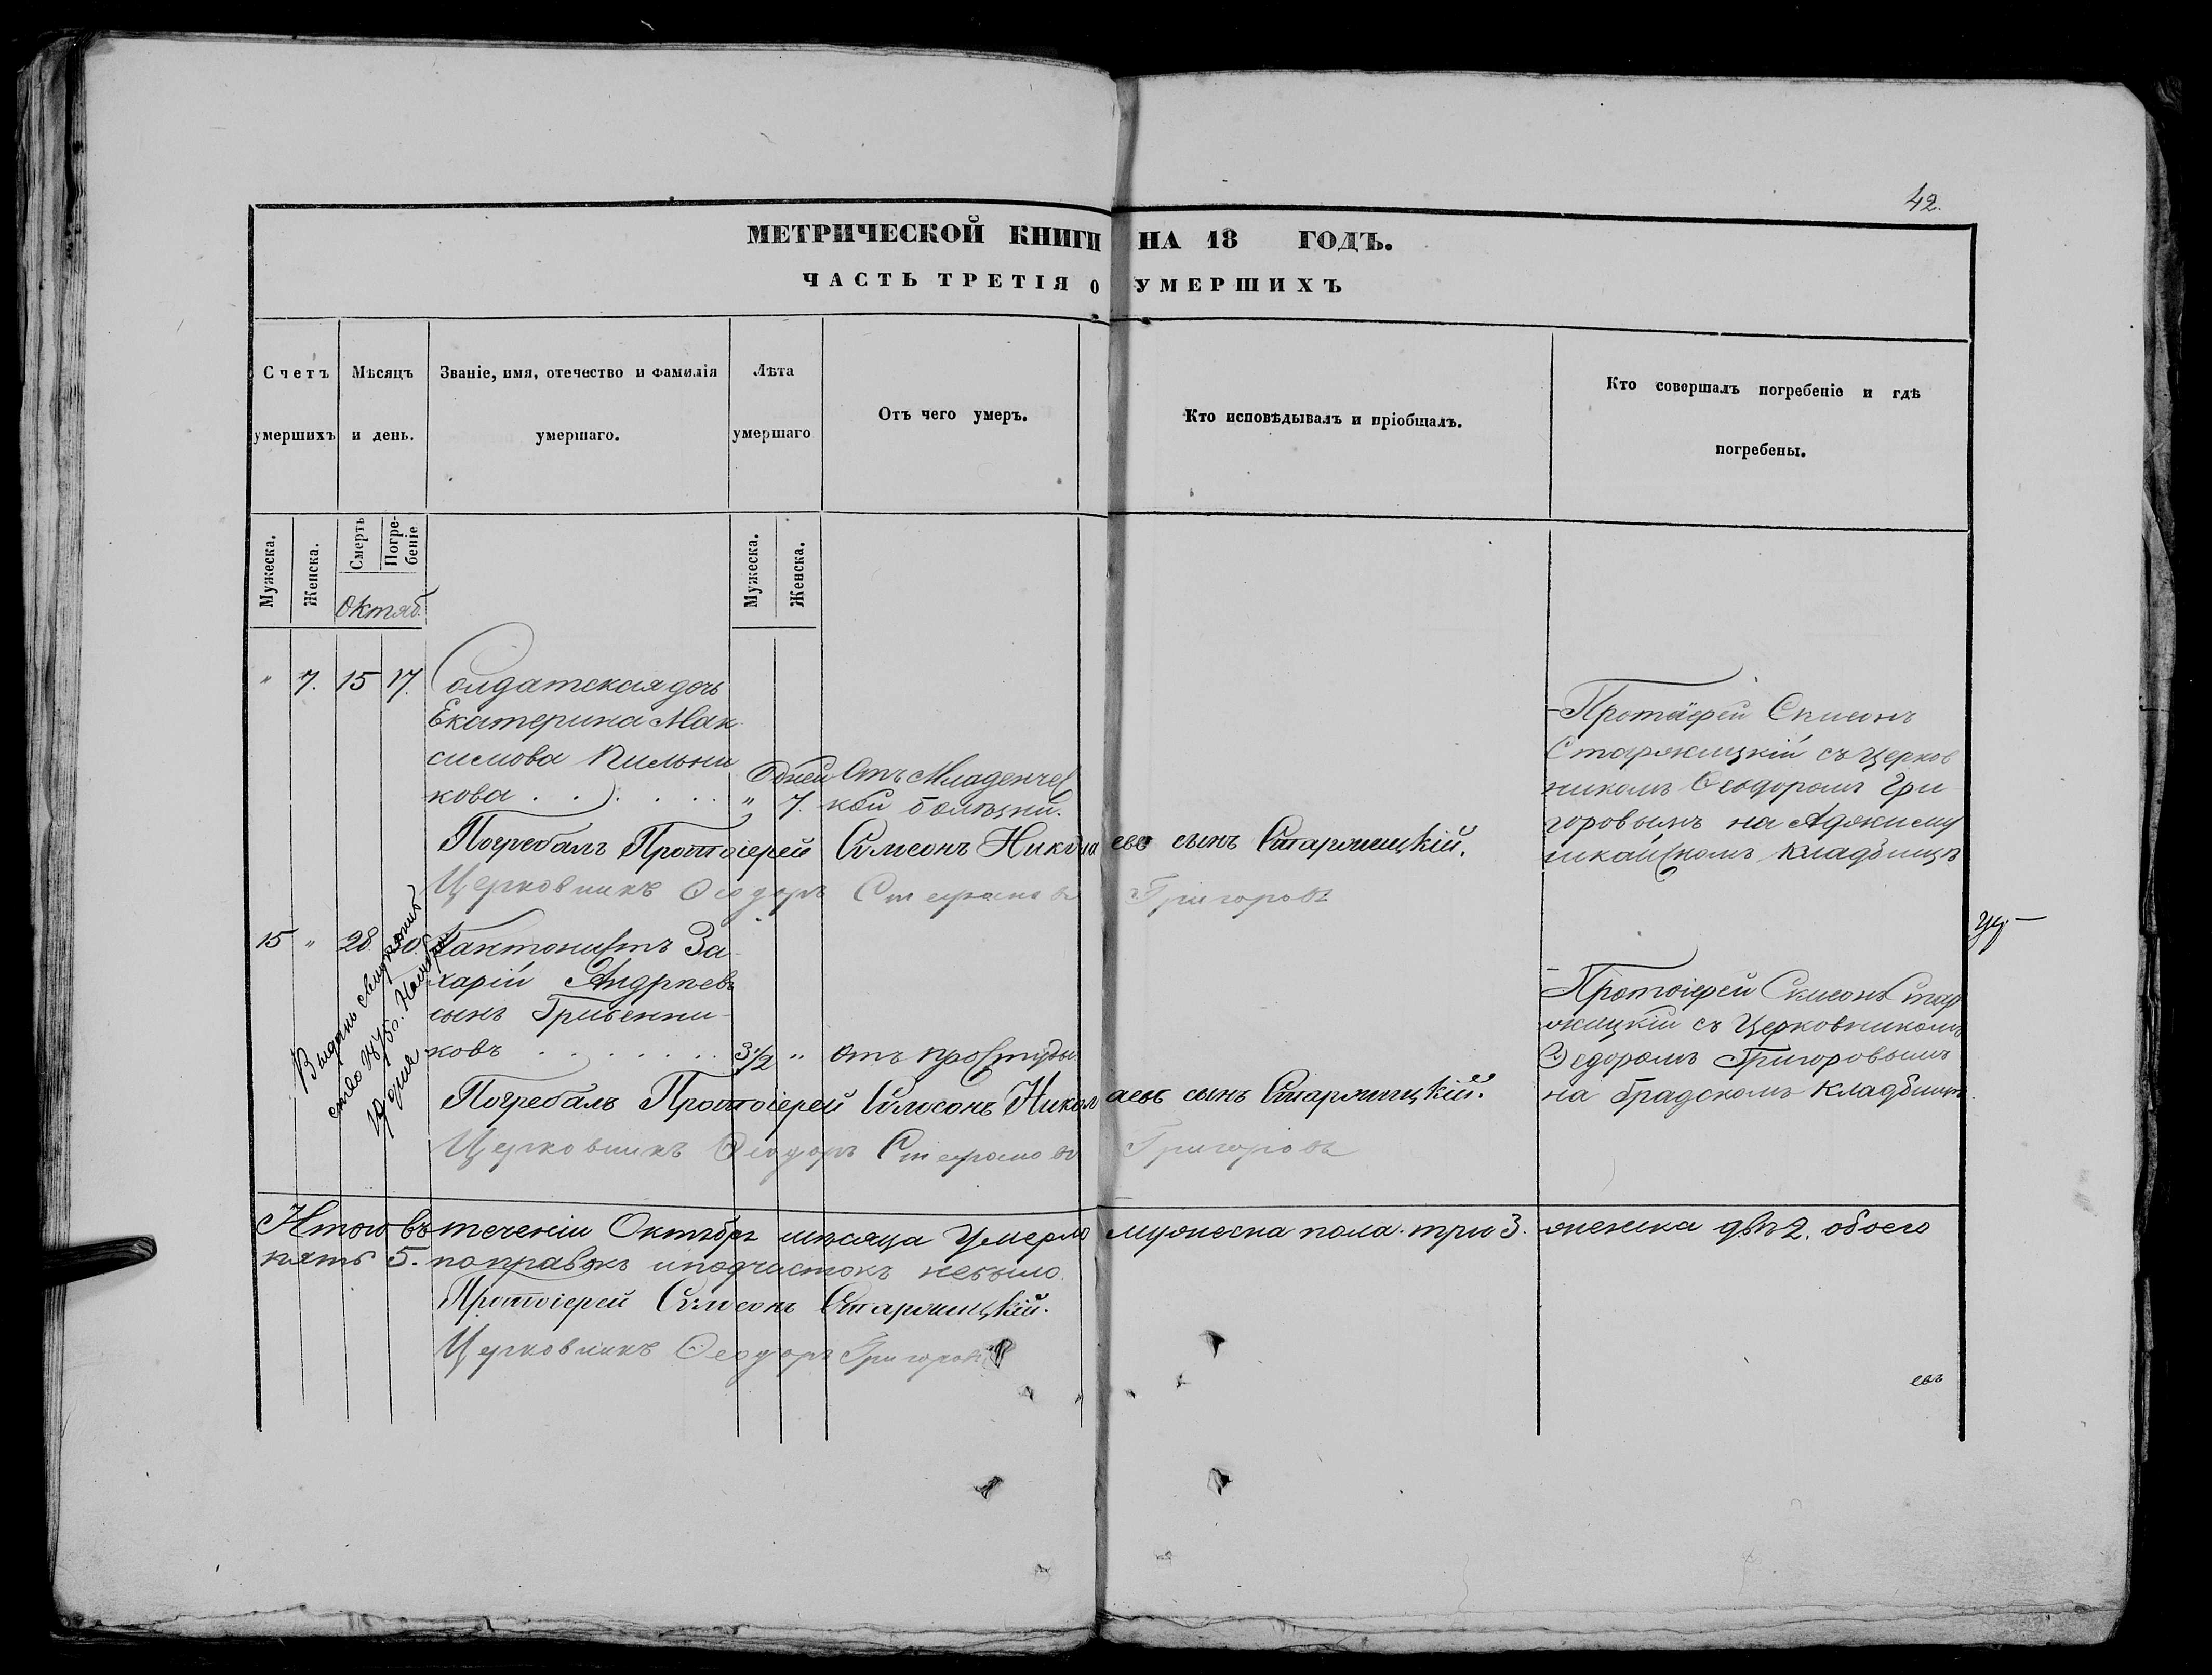 42.
МЕТРИЧЕСКОЙ КНИГИ НА 18 ГОДЪ.
ЧАСТЬ ТРЕТІЯ О УМЕРШИХЪ
Счетъ умершихъ
Мѣсяцъ и день.
Званіе, имя, отечество и фамилія умершаго.
Лѣта умершаго
Отъ чего умеръ.
Кто исповѣдывалъ и пріобщалъ.
Кто совершалъ погребеніе и гдѣ погребены.
Мужеска.
Женска.
Смерть
Погребеніе
Октяб.
Мужеска.
Женска.
" 7. 15 17. Солдатская дочь
Екатерина Мак
симова Пильни
кова . . . . . .
Дней
" 7.
Отъ Младенчес
кой болѣзни.
Протоіерей Симеонъ
Старжицкій съ Церков
никомъ Ѳеодоромъ Гри
горовымъ на
кладбищѣ
Погребалъ Протоіерей Симеонъ Николаевъ сынъ Старжицкій.
Церковникъ Ѳеодоръ Стефановъ Григоровъ
15 " 28 30. Кантонистъ За
харій Андреевъ
сынъ Гребенни
ковъ . . . . . . .
3 1/2 "
отъ простуды.
Протоіерей Симеонъ Стар
жицкій съ Церковникомъ
Ѳедоромъ Григоровымъ
на Градскомъ Кладбищѣ.
Выданъ
дня
Погребалъ Протоіерей Симеонъ Николаевъ сынъ Старжицкій.
Церковникъ Ѳеодоръ Стефановъ Григоровъ
Итого въ теченіи Октябрь мѣсяца Умерло мужеска пола три 3. женска двѣ 2. обоего
пять 5. поправокъ и подчистокъ небыло.
Протоіерей Симеонъ Старжицкій.
Церковникъ Ѳеодоръ Григоровъ
евъ